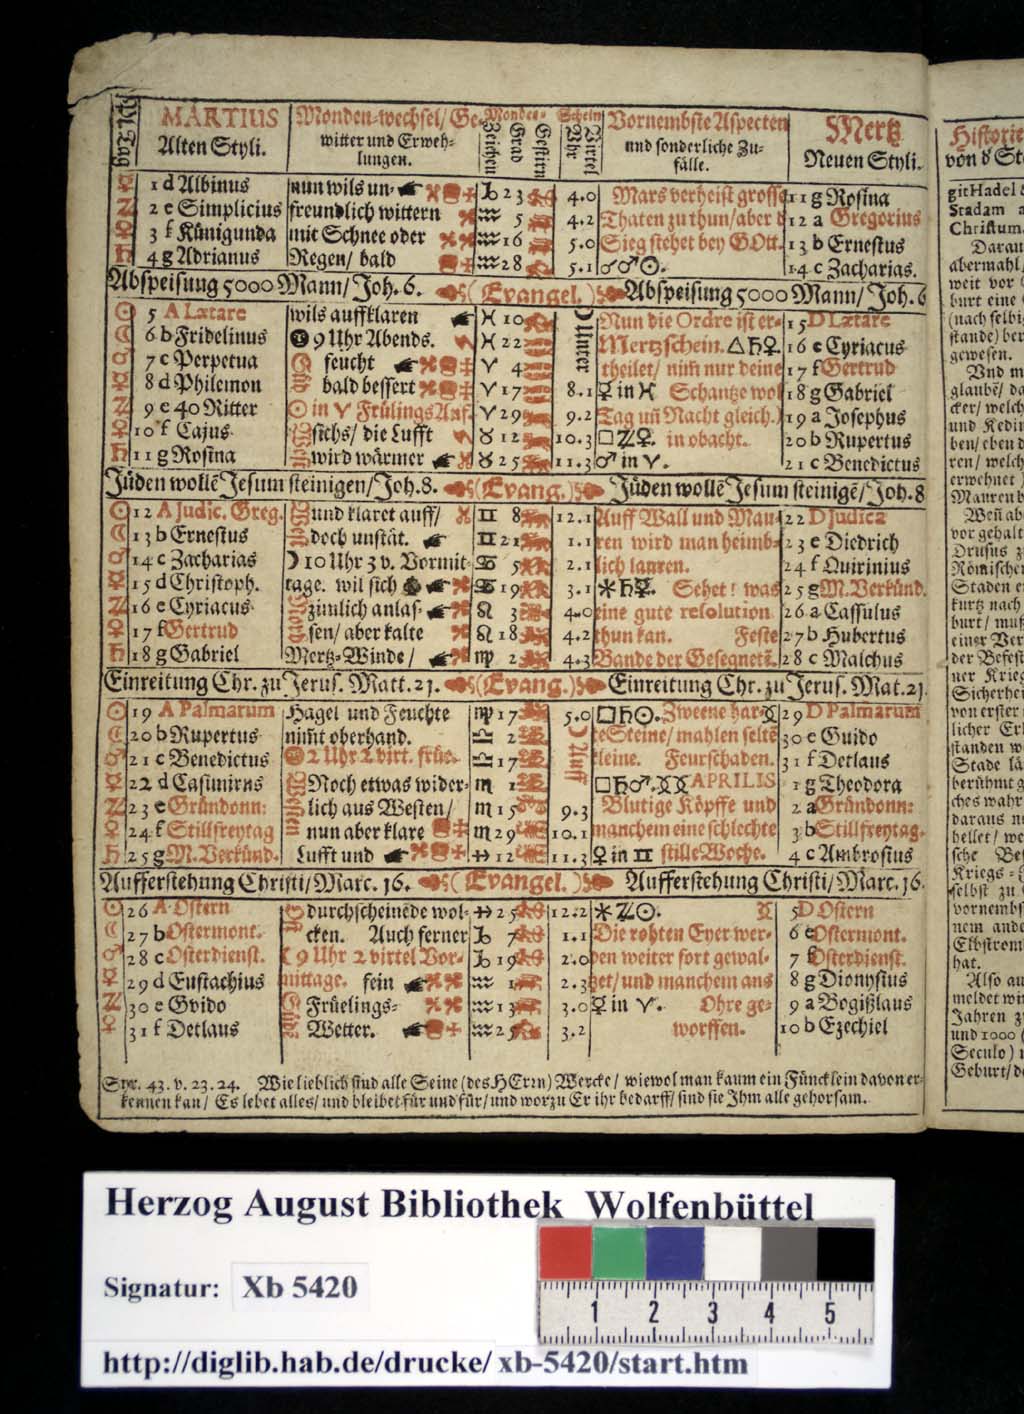 MARTIUS Monden-wechsel/ Ge- Monden- Schein Vornembste Aspecten Mertz
Alten Styli. witter und Erweh- Zeichen Grad Gestirn Uhr Virtel und sonderliche Zu- Neuen Styli.
Pl. Tag lungen. fälle.
☿ 1 d Albinus nun wils un- ♑ 23 4.0 Mars verheist grosse 11 g Rosina
♃ 2 e Simplicius freundlich wittern ♒ 5 4.2 Thaten zu thun/ aber d 12 a Gregorius
♀ 3 f Künigunda mit Schnee oder ♒ 16 5.0 Sieg stehet bey GOtt. 13 b Ernestus
♄ 4 g Adrianus Regen/ bald ♒ 28 5.1 ☌♂☉. 14 c Zacharias.
Abspeisung 5000 Mann/ Joh. 6. (Evangel.) Abspeisung 5000 Mann/ Joh. 6
☉ 5 A Lætare wils auffklaren ♓ 10 ☾ Unter Nun die Ordre ist er- 15 D Lætare
☾ 6 b Fridelinus 9 Uhr Abends. ♓ 22 Mertzschein. △♄♀. 16 e Cyriacus
♂ 7 c Perpetua feucht ♈ 4 theilet/ nim̃ nur deine 17 f Gertrud
☿ 8 d Philemon bald bessert ♈ 17 8.1 ☿ in ♓ Schantze wol 18 g Gabriel
♃ 9 e 40 Ritter ☉ in ♈ Frülings Anf. ♈ 29 9.2 Tag uñ Nacht gleich. 19 a Josephus
♀ 10 f Cajus sichs/ die Lufft ♉ 12 10.3 □♃♀. in obacht. 20 b Rupertus
♄ 11 g Rosina wird wärmer ♉ 25 11.3 ♂ in ♈. 21 c Benedictus
Jüden wollẽ Jesum steinigen/ Joh. 8. (Evang.) Jüden wollẽ Jesum steinigẽ/ Joh. 8
☉ 12 A Judic. Greg. und klaret auff/ ♊ 8 12.1 Auff Wall und Mau- 22 D Judica
☾ 13 b Ernestus doch unstät. ♊ 21 1.1 ren wird man heimb- 23 e Diedrich
♂ 14 c Zacharias ☽ 10 Uhr 3 v. Vormit- ♋ 5 2.1 lich lauren. 24 f Quirinius
☿ 15 d Christoph. tage. wil sich ♋ 19 3.1 ⚹♄☿. Sehet! was 25 g M. Verkünd.
♃ 16 e Cyriacus zimlich anlas- ♌ 3 4.0 eine gute resolution 26 a Cassulus
♀ 17 f Gertrud sen/ aber kalte ♌ 18 4.2 thun kan. Feste 27 b Hubertus
♄ 18 g Gabriel Mertz-Winde/ ♍ 2 4.3 Bande der Gesegnetẽ. 28 c Malchus
Einreitung Chr. zu Jerus. Matt. 21. (Evang.) Einreitung Chr. zu Jerus. Mat. 21.
☉ 19 A Palmarum Hagel und Feuchte ♍ 17 5.0 □♄☉. Zweene har- 29 D Palmarum
☾ 20 b Rupertus nim̃t oberhand. ♎ 2 ☾ Auff te Steine/ mahlen seltẽ 30 e Guido
♂ 21 c Benedictus 2 Uhr 2 virt. früe. ♎ 17 kleine. Feurschaden. 31 f Detlaus
☿ 22 d Casimirus Noch etwas wider- ♏ 1 □♄♂. APRILIS 1 g Theodora
♃ 23 e Gründonn: lich aus Westen/ ♏ 15 9.3 Blutige Köpffe und 2 a Gründonn:
♀ 24 f Stillfreytag nun aber klare ♏ 29 10.1 manchem eine schlechte 3 b Stillfreytag.
♄ 25 g M. Verkünd. Lufft und ♐ 12 11.3 ♀ in ♊ stille Woche. 4 c Ambrosius
Aufferstehung Christi/ Marc. 16. (Evangel.) Aufferstehung Christi/ Marc. 16.
☉ 26 A Ostern durchscheinẽde wol- ♐ 25 12.2 ⚹♃☉. 5 D Ostern
☾ 27 b Ostermont. cken. Auch ferner ♑ 7 1.1 Die rohten Eyer wer- 6 e Ostermont.
♂ 28 c Osterdienst. ☾ 9 Uhr 2 virtel Vor- ♑ 19 2.0 den weiter fort gewal- 7 f Osterdienst.
☿ 29 d Eustachius mittage. fein ♒ 1 2.3 et/ und manchem ans 8 g Dionysius
♃ 30 e Gvido Früelings- ♒ 13 3.0 ☿ in ♈. Ohre ge- 9 a Bogißlaus
♀ 31 f Detlaus Wetter. ♒ 25 3.2 worffen. 10 b Ezechiel
Syr. 43. v. 23. 24. Wie lieblich sind alle Seine (des HErrn) Wercke/ wiewol man kaum ein Füncklein davon er-
kennen kan/ Es lebet alles/ und bleibet für und für/ und worzu Er ihr bedarff/ sind sie Jhm alle gehorsam.
Historie
von d' St
git Hadel
Stadam a
Christum.
Darau
abermahl/
weit vor
burt eine
(nach selbi
stande) ber
gewesen.
Und m
glaubẽ/ da
cker/ welch
und Kedin
ben/ eben d
ren/ welch
erwehnet
Mauren b
Weñ ab
vor gehalt
Drusus z
Römischer
Staden e
kurtz nach
burt/ muß
einer Ver
der Befest
ner Krieg
Sicherhei
von erster
licher Er
standen w
Stade lä
berühmt g
ches wahr
daraus n
hellet/ we
sche Be
Kriegs-
selbst zu
vornembs
nem ande
Elbstrom
hat.
Also au
meldet wi
Jahren z
und 1000 (
Seculo)
Geburt/ de
Herzog August Bibliothek Wolfenbüttel
Signatur: Xb 5420
1 2 3 4 5
http://diglib.hab.de/drucke/ xb-5420/start.htm